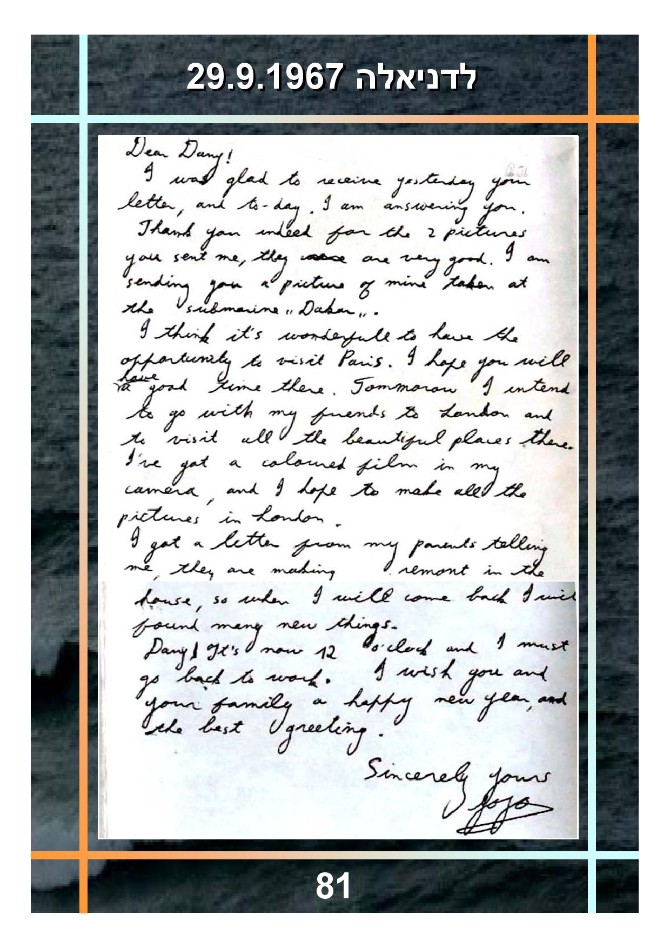 לדניאלה 29.9.1967
Dear Dany!
I was glad to receive yesterday your
letter, and to-day. I am answering you.
Thank you indeed for the 2 pictures
you sent me, they are very good. I am
sending you a picture of mine taken at
the submarine „Dakar„.
I think it's wonderfull to have the
opportunety to visit Paris. I hope you will
have
a good time there. Tommorow I intend
to go with my friends to London and
to visit all the beautiful places there.
I've got a coloured film in my
camera, and I hope to make all the
pictures in London.
I got a letter from my parents telling
me, they are making remont in the
house, so when I will come back I will
found many new things.
Dany! It's now 12 o'clock and I must
go back to work. I wish you and
your family a happy new year, and
the best greeting.
Sincerely yours
JoJo
81